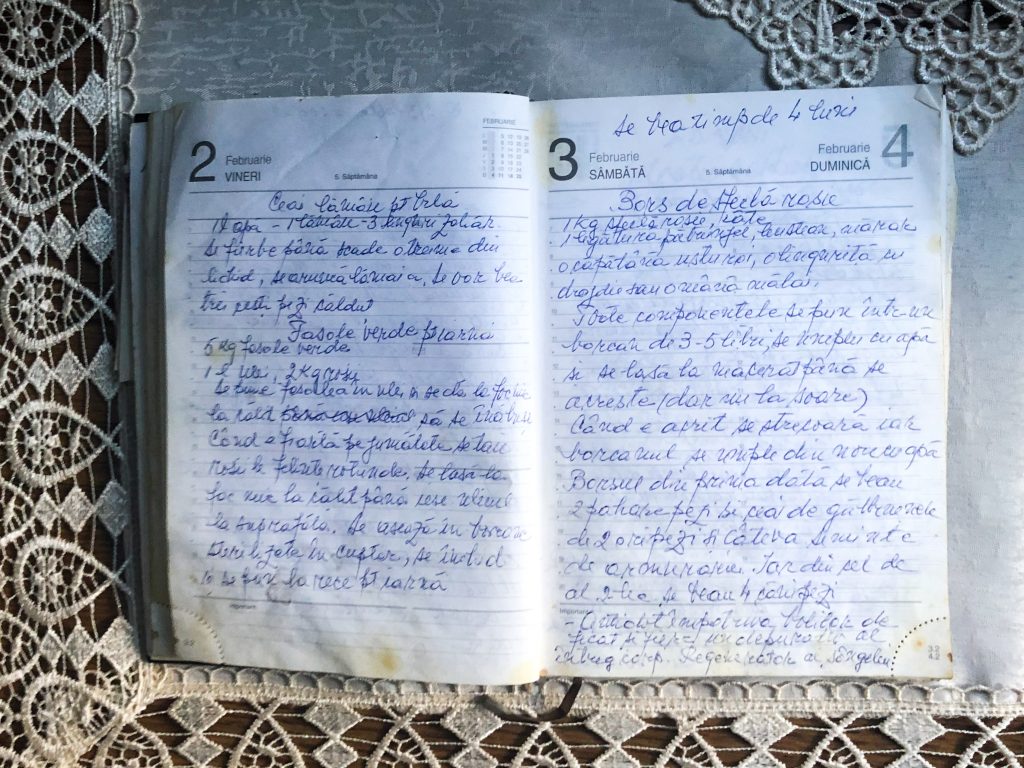 2
Februarie
VINERI
5. Săptămâna
FEBRUARIE
Ceai lămâie pt
1 l apă - 1 lămâie - 3 linguri zahăr
Se fierbe până scade o treime din
lichid, se aruncă lămâia, se vor bea
trei pe zi călduț
Fasole verde pt iarnă
5 Kg fasole verde
1 l ulei, 2 Kg roșii
Se pune fasolea în ulei și se dă la
la să se înăbușe
Când e fiartă pe jumătate se taie
roșii felii rotunde, se lasă la
foc mic la până iese uleiul
la suprafață. Se așează în borcane
sterilizate în cuptor, se închid
și se pun la rece pt iarnă
Important
se bea timp de 4 luni
3
Februarie
SÂMBĂTĂ
5. Săptămâna
Februarie
DUMINICĂ
4
Borș de sfeclă roșie
1 Kg sfeclă roșie,
1 legătură pătrunjel, leuștean, mărar
o căpățână usturoi, o linguriță cu
drojdie sau o mână mălai.
Toate componentele se pun într-un
borcan de 3-5 litri, se umple cu apă
și se lasă la macerat până se
acrește (dar nu la soare)
Când e acrit se strecoară iar
borcanul se umple din nou cu apă
Borșul din prima dată se beau
2 pahare pe zi și ceai de gălbenele
de 2 ori pe zi și câteva
de Iar din cel de
al 2-lea se beau 4 căni pe zi
Important
- împotriva bolilor de
ficat și fiere, un depurativ al
întreg corp. Regenerator al sângelui